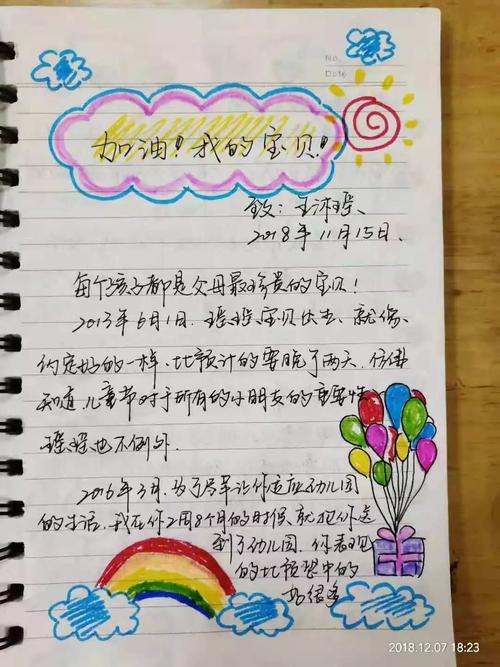 No.
Date
加油！我的宝贝！
致：王沐瑶、
2018年11月15日.
每个孩子都是父母最珍贵的宝贝！
2013年6月1日.瑶瑶宝贝出生、就像、
约定好的一样.比预计的要晚了两天.仿佛
知道.儿童节对于所有的小朋友的重要性
瑶瑶也不例外.
2016年3月.为了尽早让你适应幼儿园
的生活.我在你2周8个月的时候.就把你送
到了幼儿园.你表现
的比预想中的
好很多
2018.12.07 18:23